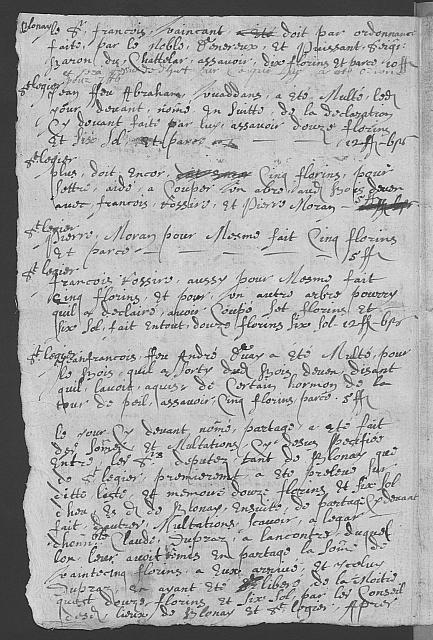 Blonay le Sr. françois vaincant doit par ordonnance
faite, par le Noble, Genereux, et Puissant Seigr
Baron, du Chattelar, assavoir, dix florins et parce 10 ff
St legier
Jean ffeu Abraham a eté Multé, led
jour devant, nomé en suitte, de la declaration
Cy devant faite par luy, assavoir douze florins
et Six Sol, et parce 12 ff - 6 s
St legier
plus, doit encor, Cinq florins, pour
s'ettre, aidé, a Couper un abre, aud bois
avec françois, rossire, et Pierre Moran
St legier
Pierre, Moran pour Mesme fait Cinq florins
et parce 5 ff
St legier
francois rossire, aussy pour Mesme fait
Cinq florins, et pour, un autre arbre pourry
quil a declairé, avoir Coupé Set florins et
Six Sol, fait entout, douze florins six sol - 12 ff - 6 s
St legier
Jeanfrancois, ffeu André a été Multé, pour
le bois, quil a Sorty dud bois deven, disant
quil, lavoit, aquis de Certain hormon de la
tour de peil, assavoir, Cinq florins parce - 5 ff
le jour Cy devant, nomé, partage, a eté fait
des Somes et Multations, Cy desus Specifiee
Entre, les Srs deputez, tant de Blonay que
de St legier, premierement, a eté prelevé sur
ditte liste, et memoire douze florins et six sol
cheu, es de Blonay, Ensuitte, de partage Cy devant
fait dautres, Multations, scavoir, a legar
dhonnête Claude, Dupraz, a lancontre, duquel
lon leur avoit remis en partage la Some de
vaintecinq florins, a eux arrivé, et Iceluy
Dupraz, en ayant eté liberé de la Moitie
quest douze florins et Six Sol, par les Conseil
desd lieux, de Blonay et St legier